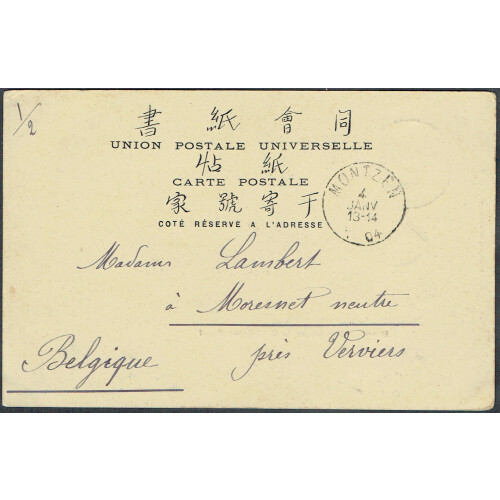 1/2
書 紙 會 同
UNION POSTALE UNIVERSELLE
帖 紙
CARTE POSTALE
家 號 寄 于
COTÉ RÉSERVE A L'ADRESSE
MONTZEN
4
JANV
13-14
04
Madame Lambert
à Moresnet neutre
Belgique près Verviers